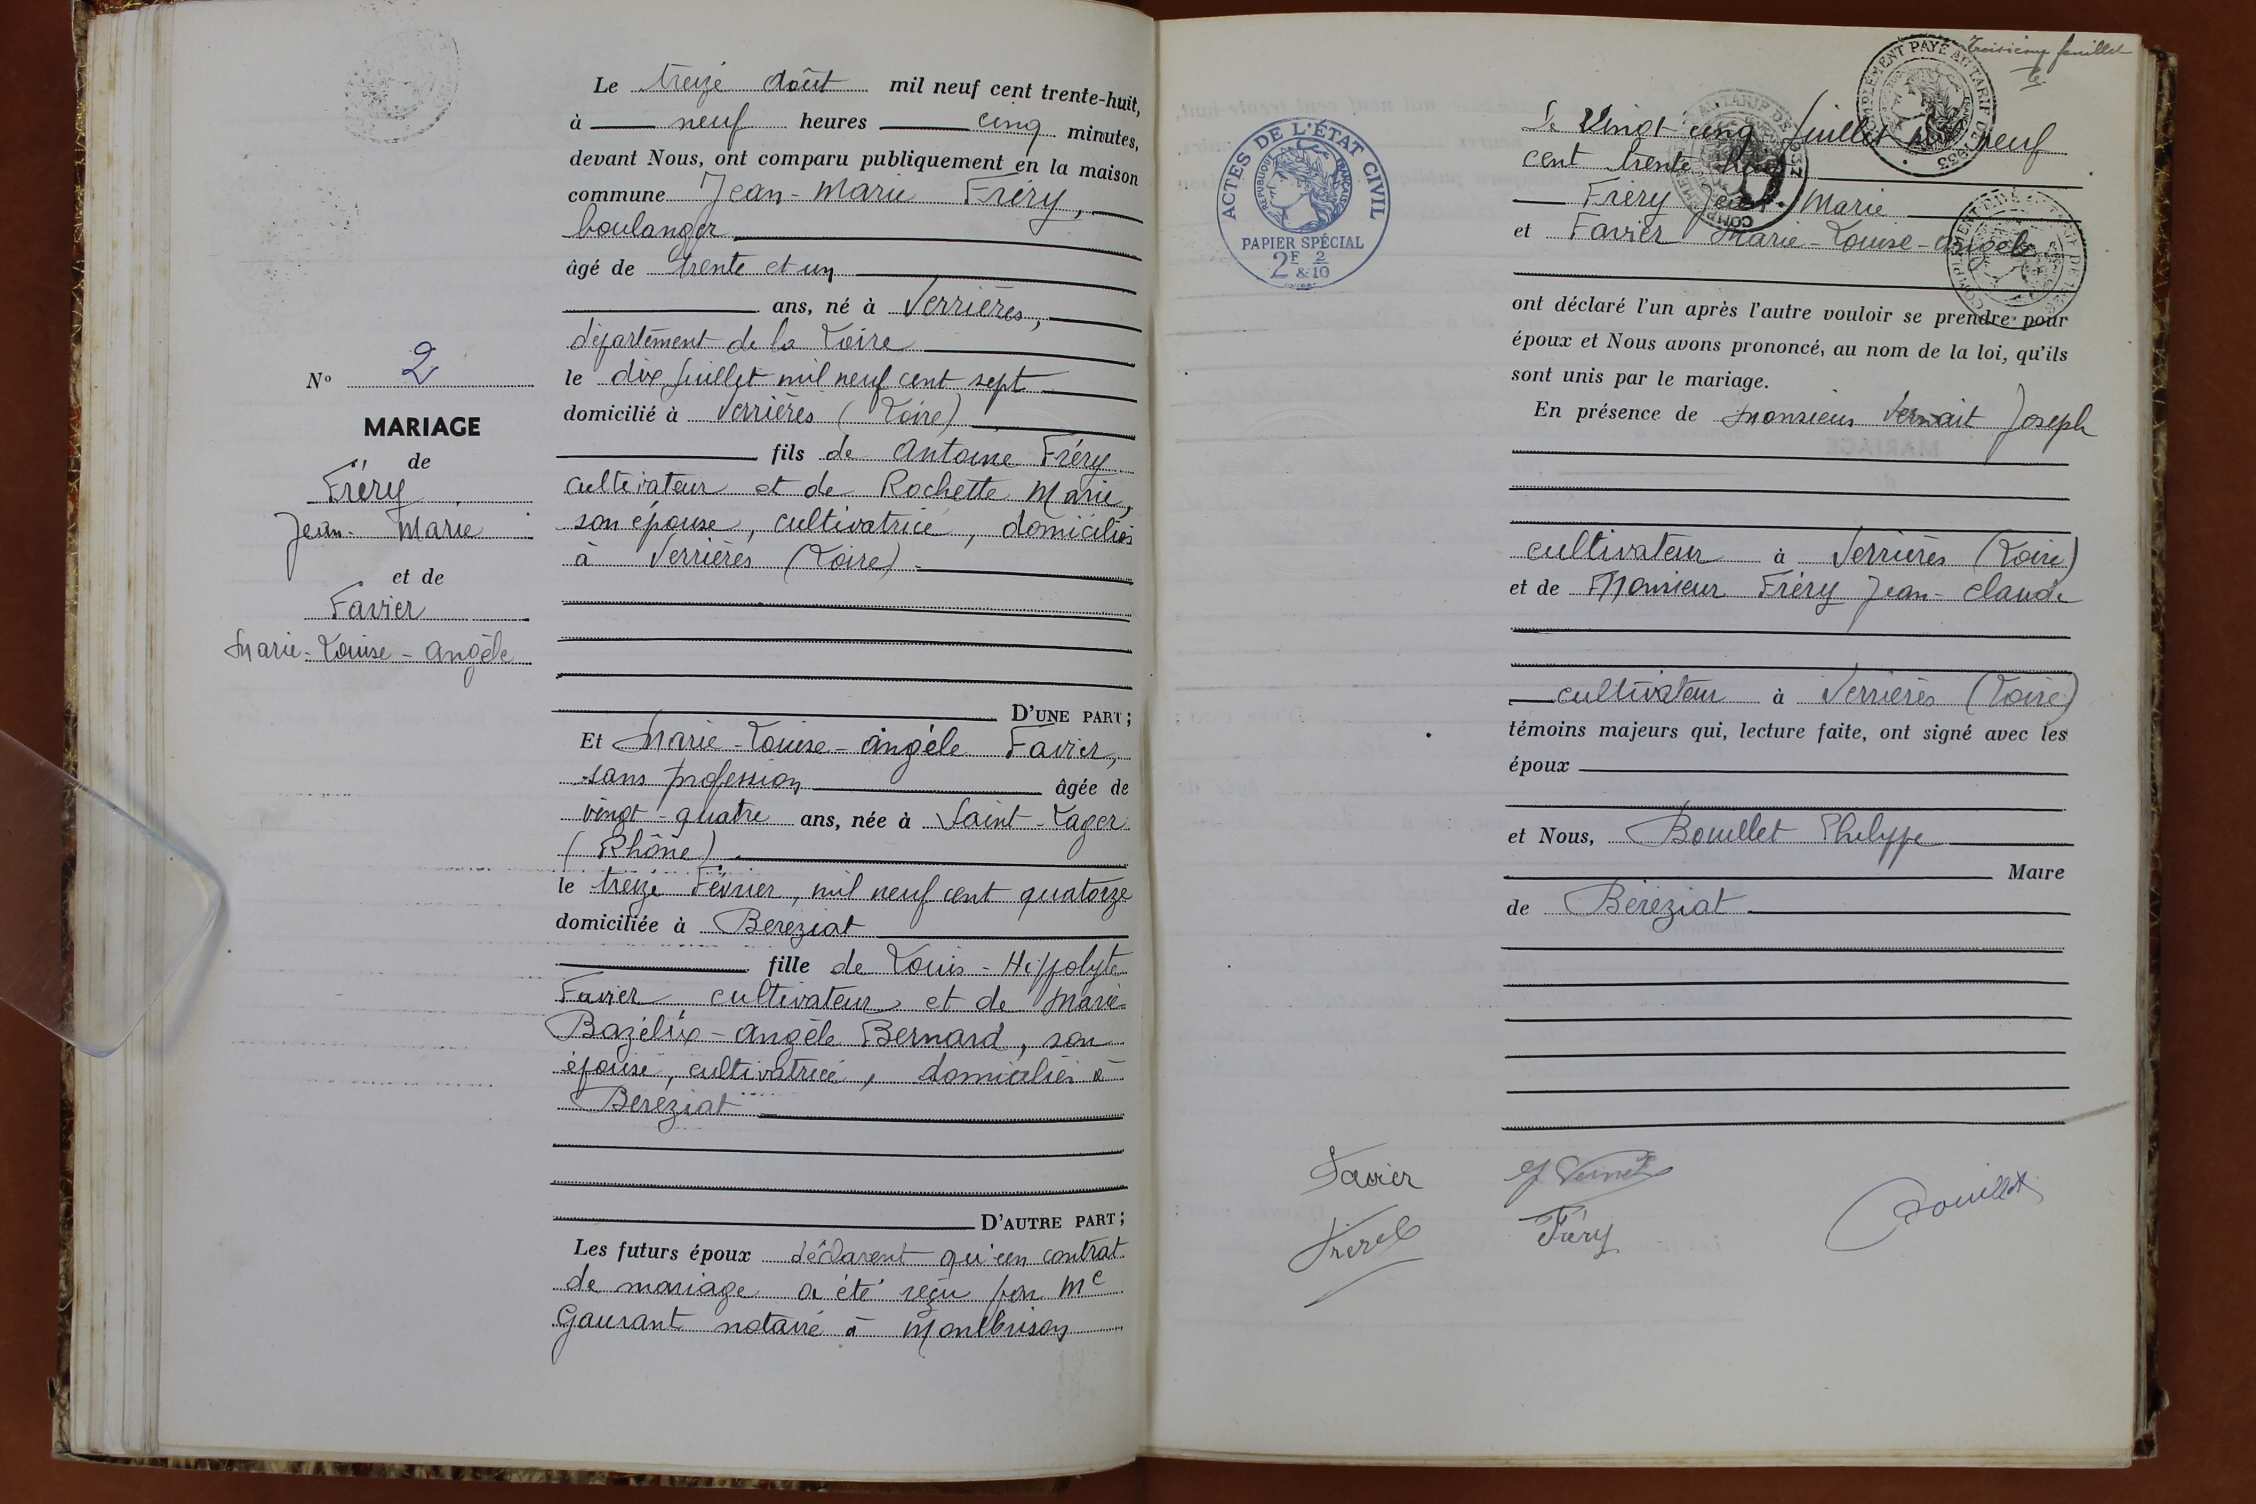 Le treize août mil neuf cent trente-huit,
à neuf heures cinq minutes,
devant Nous, ont comparu publiquement en la maison
commune Jean-Marie Fréry,
boulanger
âgé de trente et un
ans, né à Verrières,
département de la Loire
le dix Juillet mil neuf cent sept
domicilié à Verrières (Loire)
fils de Antoine Fréry
cultivateur et de Rochette Marie,
son épouse, cultivatrice, domiciliés
à Verrières (Loire)
D'UNE PART;
No 2
MARIAGE
de
Fréry
Jean-Marie
et de
Favier
Marie-Louise-Angèle
Et Marie-Louise-Angèle Favier,
sans profession âgée de
vingt-quatre ans, née à Saint-Lager
(Rhône)
le treize Février, mil neuf cent quatorze
domiciliée à Béréziat
fille de Louis-Hippolyte
Favier cultivateur et de Marie
Angèle Bernard, son
épouse, cultivatrice, domiciliés à
Béréziat
D'AUTRE PART;
Les futurs époux déclarent qu'un contrat
de mariage a été reçu par Me
Gaurant notaire à Montbrison
Troisième feuillet
ACTES DE L'ÉTAT CIVIL
RÉPUBLIQUE FRANÇAISE
PAPIER SPÉCIAL
2F 2
& 10
COMPLÉMENT PAYÉ AU TARIF DE 1933
Le Vingt cinq Juillet mil neuf
cent trente huit
Fréry Jean-Marie
et Favier Marie-Louise-Angèle
ont déclaré l'un après l'autre vouloir se prendre pour
époux et Nous avons prononcé, au nom de la loi, qu'ils
sont unis par le mariage.
En présence de Monsieur Joseph
cultivateur à Verrières (Loire)
et de Monsieur Fréry Jean-Claude
cultivateur à Verrières (Loire)
témoins majeurs qui, lecture faite, ont signé avec les
époux
et Nous, Bouillet Philippe
Maire
de Béréziat
Favier
Fréry
Bouillet